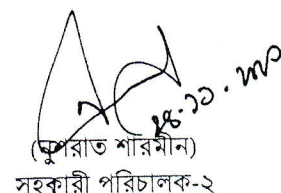 ২৪.১১.২০
(নুসরাত শারমীন)
সহকারী পরিচালক-২